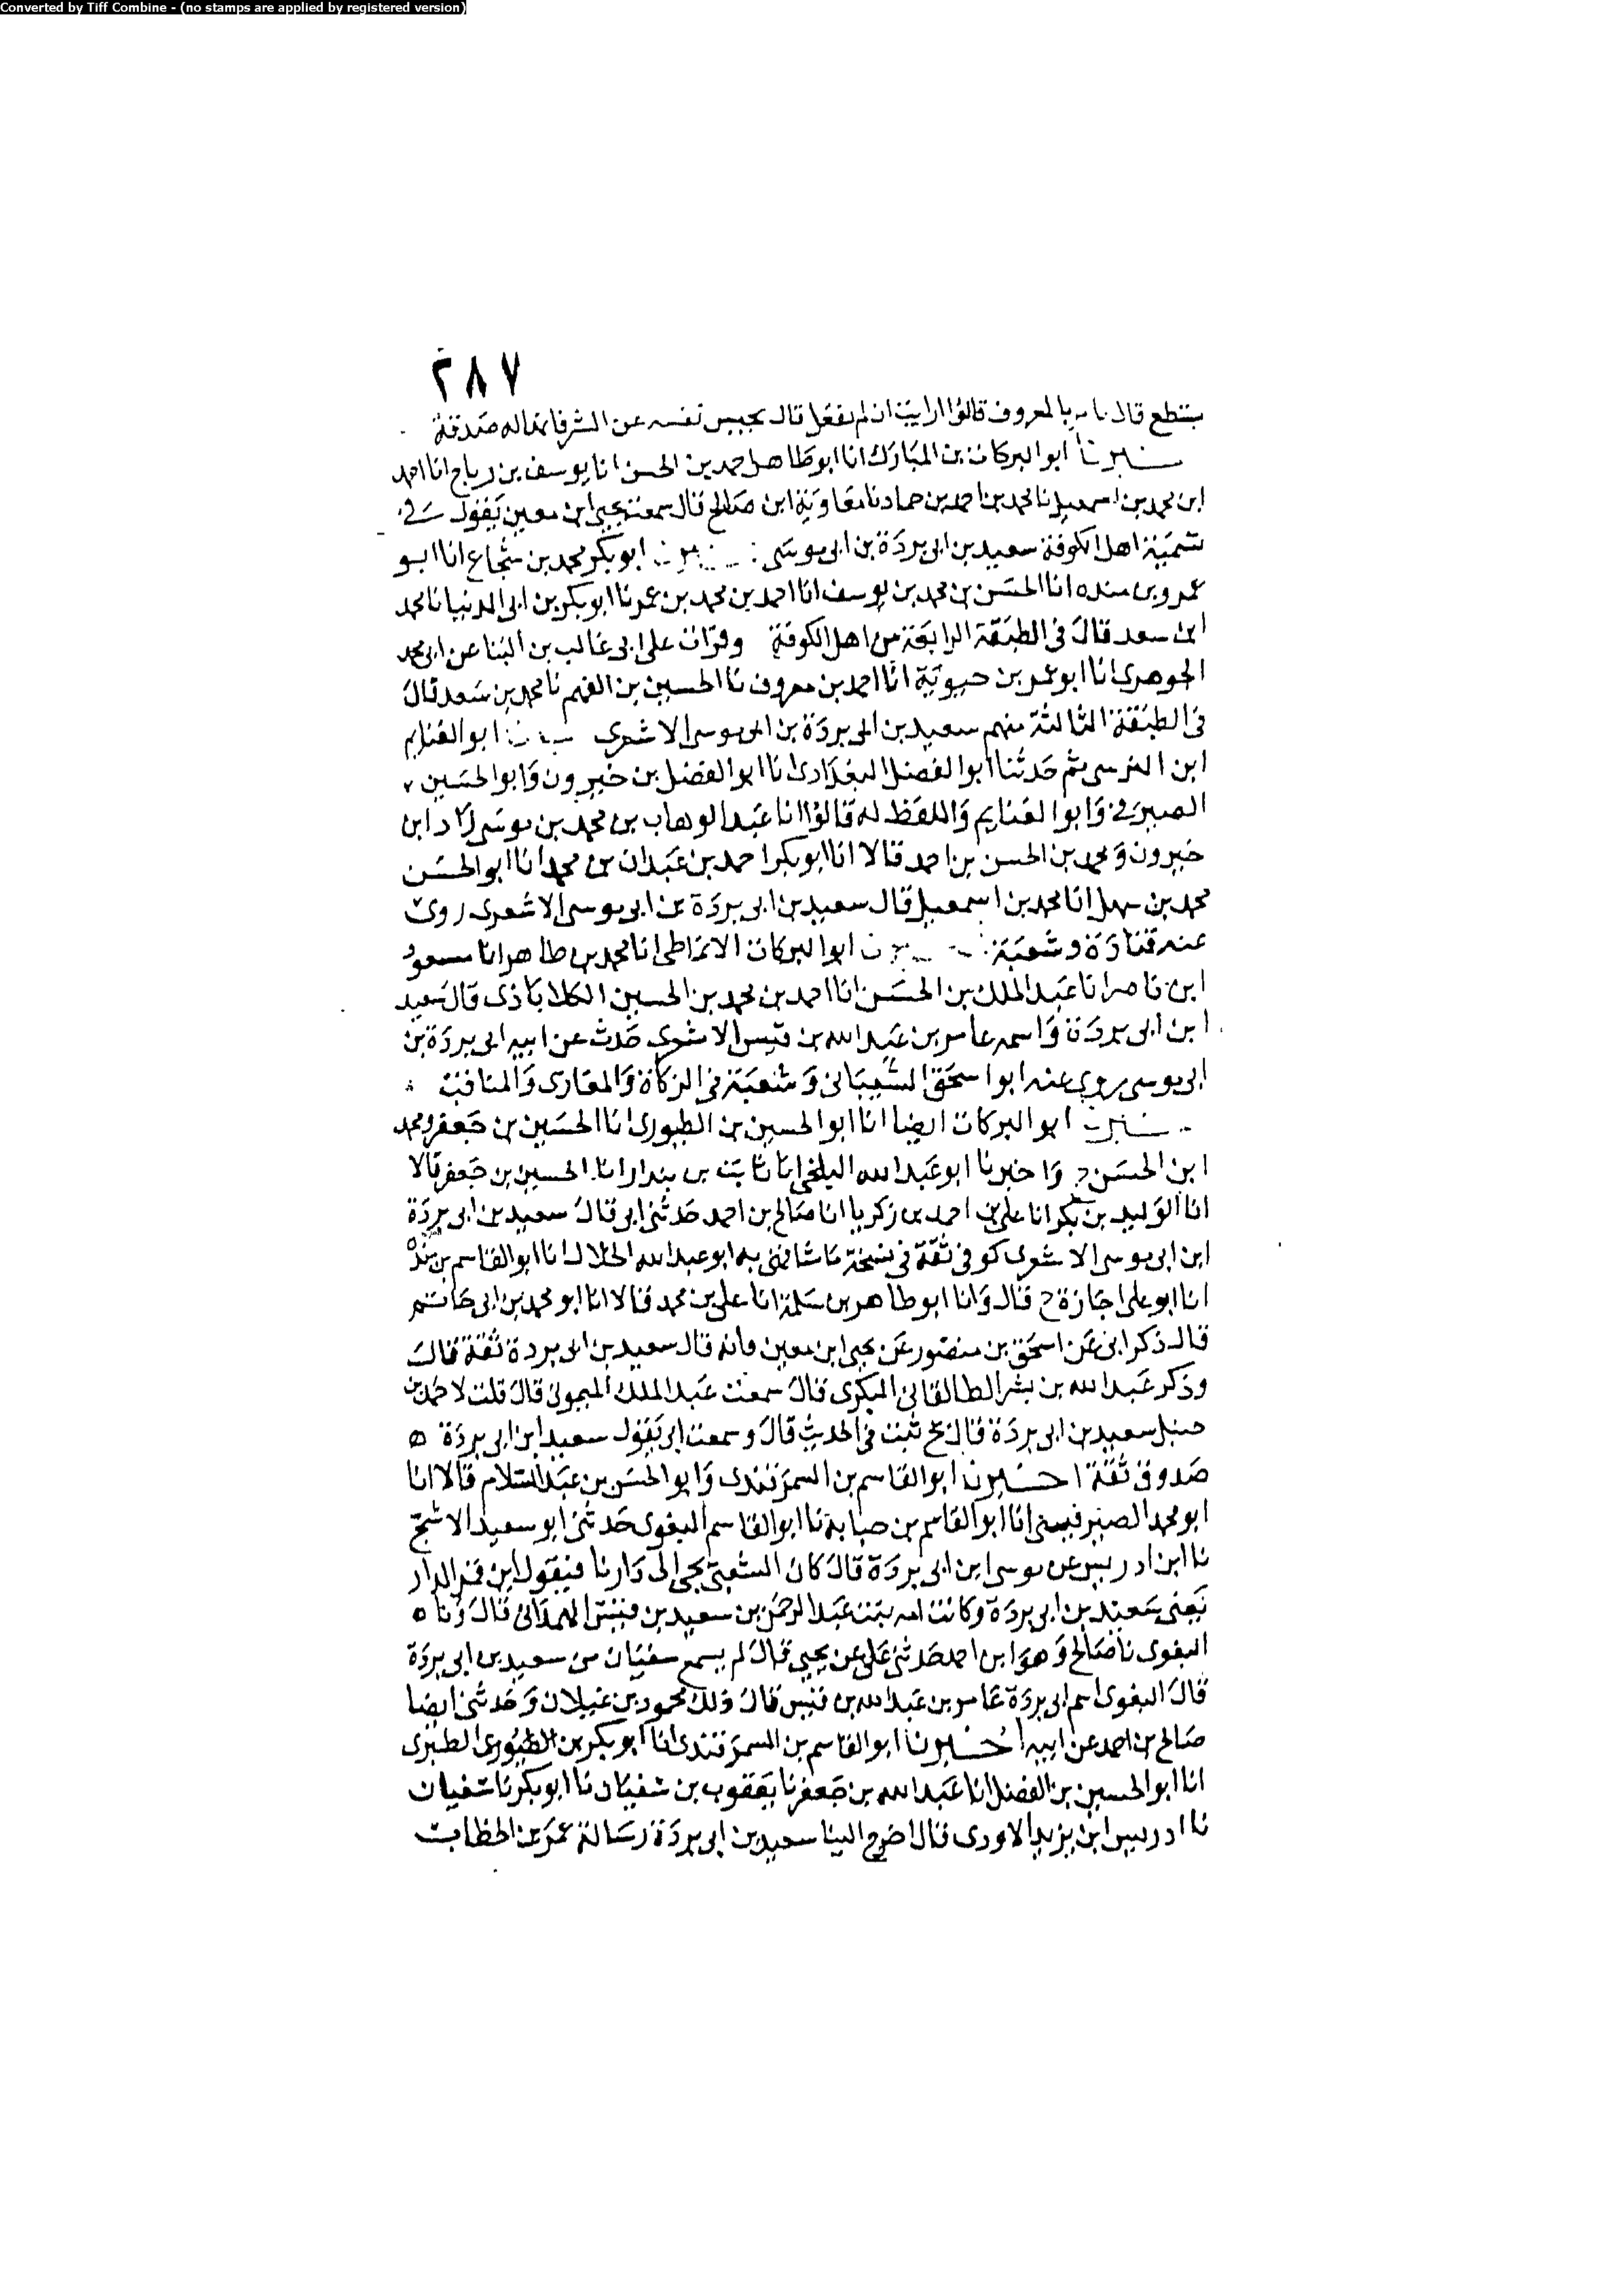 Converted by Tiff Combine - (no stamps are applied by registered version)
٢٨٧
يستطع قال يامر بالمعروف قالوا ارايت ان لم يفعل قال يحبس نفسه عن الشر فانها له صدقة
ابو البركات بن المبارك انا ابو طاهر احمد بن الحسن انا يوسف بن رباح انا احمد
ابن محمد بن اسمعيل نا محمد بن احمد بن حماد نا معاوية ابن صالح قال سمعت يحيى ابن معين يقول في
تسمية اهل الكوفة سعيد بن ابى بردة بن ابى موسى ابو بكر محمد بن شجاع انا ابو
عمرو بن منده انا الحسن بن محمد بن يوسف انا احمد بن محمد بن عمر نا ابو بكر بن ابى الدنيا نا محمد
ابن سعد قال فى الطبقة الرابعة من اهل الكوفة وقرات على ابى غالب بن البنا عن ابى محمد
الجوهرى انا ابو عمر بن حيوية انا احمد بن معروف نا الحسين بن الفهم نا محمد بن سعد قال
فى الطبقة الثالثة منهم سعيد بن ابى بردة بن ابى موسى الاشعرى ابو الغنايم
ابن النرسى ثم حدثنا ابو الفضل البغدادى انا ابو الفضل بن خيرون وابو الحسين
الصيرفى وابو الغنايم واللفظ له قالوا انا عبد الوهاب بن محمد بن موسى زاد ابن
خيرون ومحمد بن الحسن بن احمد قالا انا ابو بكر احمد بن عبدان بن محمد انا ابو الحسن
محمد بن سهل انا محمد بن اسمعيل قال سعيد بن ابى بردة بن ابى موسى الاشعرى روى
عنه قتادة وشعبة ابو البركات الانماطى انا محمد بن طاهر انا مسعود
ابن ناصر انا عبد الملك بن الحسن انا احمد بن محمد بن الحسين الكلاباذى قال سعيد
ابن ابى بردة واسمه عامر بن عبد الله بن قيس الاشعرى حدث عن ابيه ابى بردة بن
ابى موسى روى عنه ابو اسحق الشيبانى وشعبة فى الزكاة والمغازى والمناقب
ابو البركات ايضا انا ابو الحسين بن الطيورى انا الحسين بن جعفر ومحمد
ابن الحسن ح واخبرنا ابو عبد الله البلخى انا ثابت بن بندار انا الحسين بن جعفر قالا
انا الوليد بن بكر انا على بن احمد بن زكريا انا صالح بن احمد حدثنى ابى قال سعيد بن ابى بردة
ابن ابى موسى الاشعرى كوفى ثقة فى نسخة ما شافهنى به ابو عبد الله الخلال انا ابو القاسم بن منده
انا ابو على اجازة ح قال وانا ابو طاهر بن سلمة انا على بن محمد قالا انا ابو محمد بن ابى حاتم
قال ذكر ابى عن اسحق بن منصور عن يحيى ابن معين وانه قال سعيد بن ابى بردة ثقة قال
وذكر عبد الله بن بشر الطالقانى البكرى قال سمعت عبد الملك الميمونى قال قلت لاحمد بن
حنبل سعيد بن ابى بردة قال بخ ثبت فى الحديث قال وسمعت ابى يقول سعيد ابن ابى بردة
صدوق ثقة اخبرنا ابو القاسم بن السمرقندى وابو الحسن بن عبد السلام قالا انا
ابو محمد الصريفينى انا ابو القاسم بن حبابة نا ابو القاسم البغوى حدثنى ابو سعيد الاشج
نا ابن ادريس عن موسى ابن ابى بردة قال كان الشعبى يجى الى دارنا فيقول اين قمر الدار
يعنى سعيد بن ابى بردة وكانت امه بنت عبد الرحمن بن سعيد بن قيس الهمدانى قال ونا
البغوى نا صالح وهو ابن احمد حدثنى على عن يحيى قال لم يسمع سفيان من سعيد بن ابى بردة
قال البغوى اسم ابى بردة عامر بن عبد الله بن قيس قال ذلك محمود بن غيلان وحدثنى ايضا
صالح بن احمد عن ابيه اخبرنا ابو القاسم بن السمرقندى انا ابو بكر بن الطبرى
انا ابو الحسين بن الفضل انا عبد الله بن جعفر نا يعقوب بن سفيان نا ابو بكر نا سفيان
نا ادريس ابن يزيد الاودى قال اخرج الينا سعيد بن ابى بردة رسالة عمر بن الخطاب